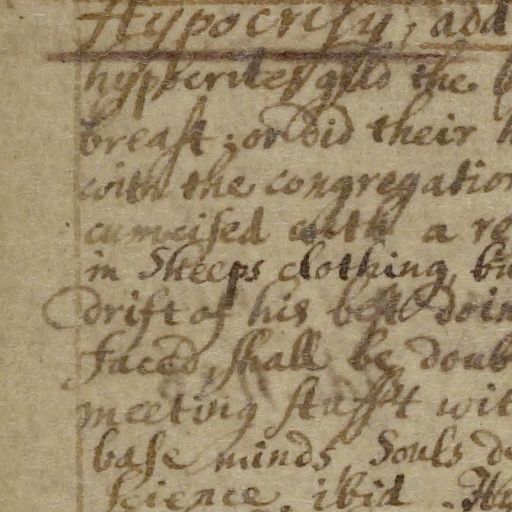 Hypocrisy, add
hypocrites gild the
breast; or did their
with the congregation
cumcised with a re
in Sheeps clothing, bu
drift of his best doin
Faced, shall be doub
meeting stufft wit
base minds Souls de
science. ibid. He